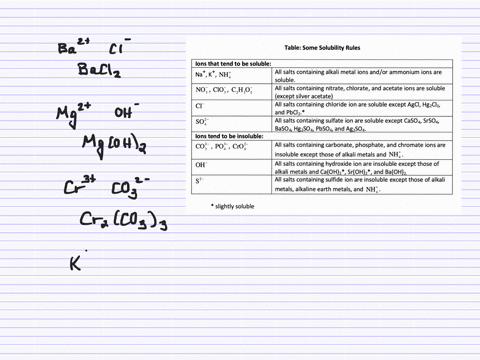 Ba²⁺ Cl⁻
BaCl₂
Mg²⁺ OH⁻
Mg(OH)₂
Cr³⁺ CO₃²⁻
Cr₂(CO₃)₃
K
Table: Some Solubility Rules
Ions that tend to be soluble:
Na⁺, K⁺, NH₄⁺ All salts containing alkali metal ions and/or ammonium ions are
soluble.
NO₃⁻, ClO₃⁻, C₂H₃O₂⁻ All salts containing nitrate, chlorate, and acetate ions are soluble
(except silver acetate)
Cl⁻ All salts containing chloride ion are soluble except AgCl, Hg₂Cl₂,
and PbCl₂.*
SO₄²⁻ All salts containing sulfate ion are soluble except CaSO₄, SrSO₄,
BaSO₄, Hg₂SO₄, PbSO₄, and Ag₂SO₄.
Ions tend to be insoluble:
CO₃²⁻, PO₄³⁻, CrO₄²⁻ All salts containing carbonate, phosphate, and chromate ions are
insoluble except those of alkali metals and NH₄⁺.
OH⁻ All salts containing hydroxide ion are insoluble except those of
alkali metals and Ca(OH)₂*, Sr(OH)₂*, and Ba(OH)₂
S²⁻ All salts containing sulfide ion are insoluble except those of alkali
metals, alkaline earth metals, and NH₄⁺.
* slightly soluble